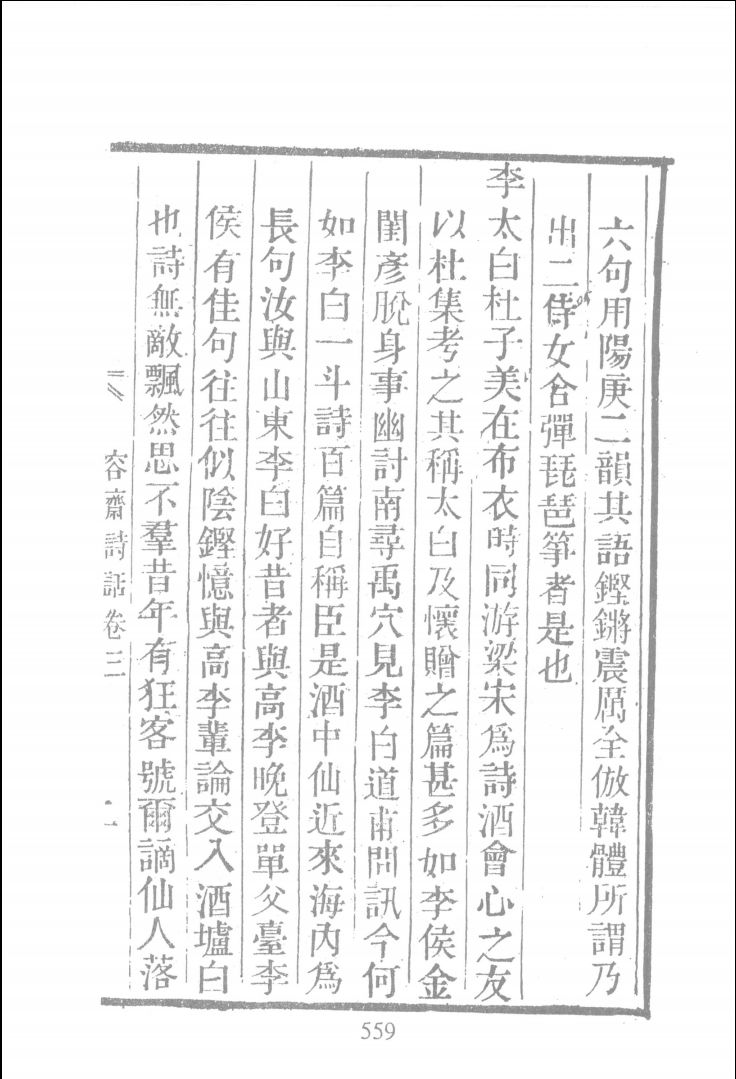 六句用陽庚二韻其語鏗鏘震厲全倣韓體所謂乃
出二侍女合彈琵琶箏者是也
李太白杜子美在布衣時同游梁宋爲詩酒會心之友
以杜集考之其稱太白及懷贈之篇甚多如李侯金
閨彥脫身事幽討南尋禹穴見李白道甫問訊今何
如李白一斗詩百篇自稱臣是酒中仙近來海內爲
長句汝與山東李白好昔者與高李晚登單父臺李
侯有佳句往往似陰鏗憶與高李輩論交入酒壚白
也詩無敵飄然思不羣昔年有狂客號爾謫仙人落
容齋詩話卷三
二
559